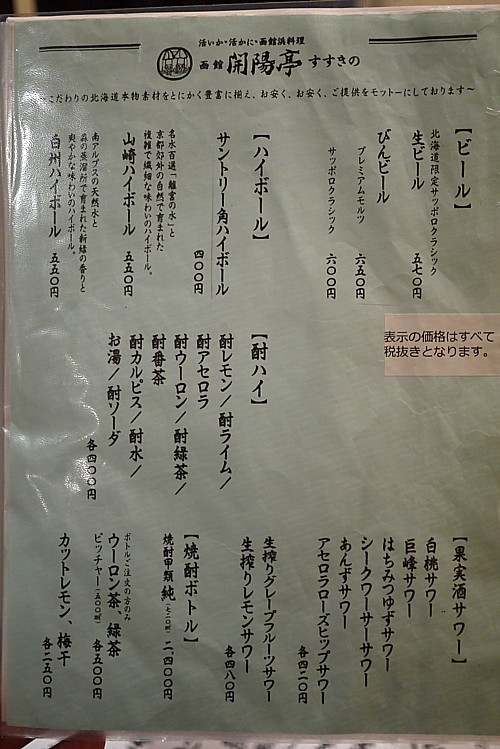 活いか・活かに・函館浜料理
函館 開陽亭 すすきの
こだわりの北海道本物素材をとにかく豊富に揃え、お安く、お安く、ご提供をモットーにしております～
【ビール】
北海道限定サッポロクラシック
生ビール 五七〇円
びんビール
プレミアムモルツ 六五〇円
サッポロクラシック 六〇〇円
【ハイボール】
サントリー角ハイボール
四〇〇円
名水百選「離宮の水」と
京都郊外の自然で育まれた
複雑で繊細な味わいのハイボール。
山崎ハイボール 五五〇円
南アルプスの天然水と
森の蒸溜所で育まれた新緑の香りと
爽やかな味わいのハイボール。
白州ハイボール 五五〇円
表示の価格はすべて
税抜きとなります。
【酎ハイ】
酎レモン／酎ライム／
酎アセロラ
酎ウーロン／酎緑茶／
酎番茶
酎カルピス／酎水／
お湯／酎ソーダ
各四〇〇円
【果実酒サワー】
白桃サワー
巨峰サワー
はちみつゆずサワー
シークワーサーサワー
あんずサワー
アセロラローズヒップサワー
各四二〇円
生搾りグレープフルーツサワー
生搾りレモンサワー
各四八〇円
【焼酎ボトル】
焼酎甲類 純(七二〇㎖) 二、四〇〇円
ボトルご注文の方のみ
ウーロン茶、緑茶
ピッチャー(一五〇〇㎖) 各五〇〇円
カットレモン、梅干
各二五〇円